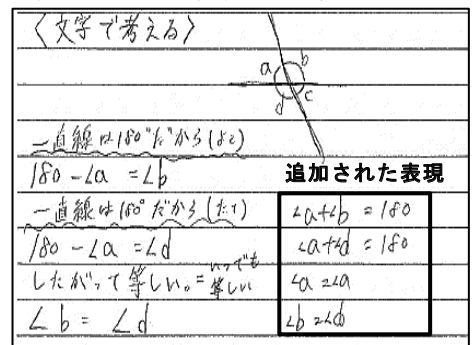 〈文字で考える〉
a
b
c
d
一直線は180°だから(よこ)
180 - ∠a = ∠b
一直線は180°だから(たて)
180 - ∠a = ∠d
したがって等しい。=いつでも等しい
∠b = ∠d
追加された表現
∠a+∠b = 180
∠a+∠d = 180
∠a = ∠a
∠b = ∠d